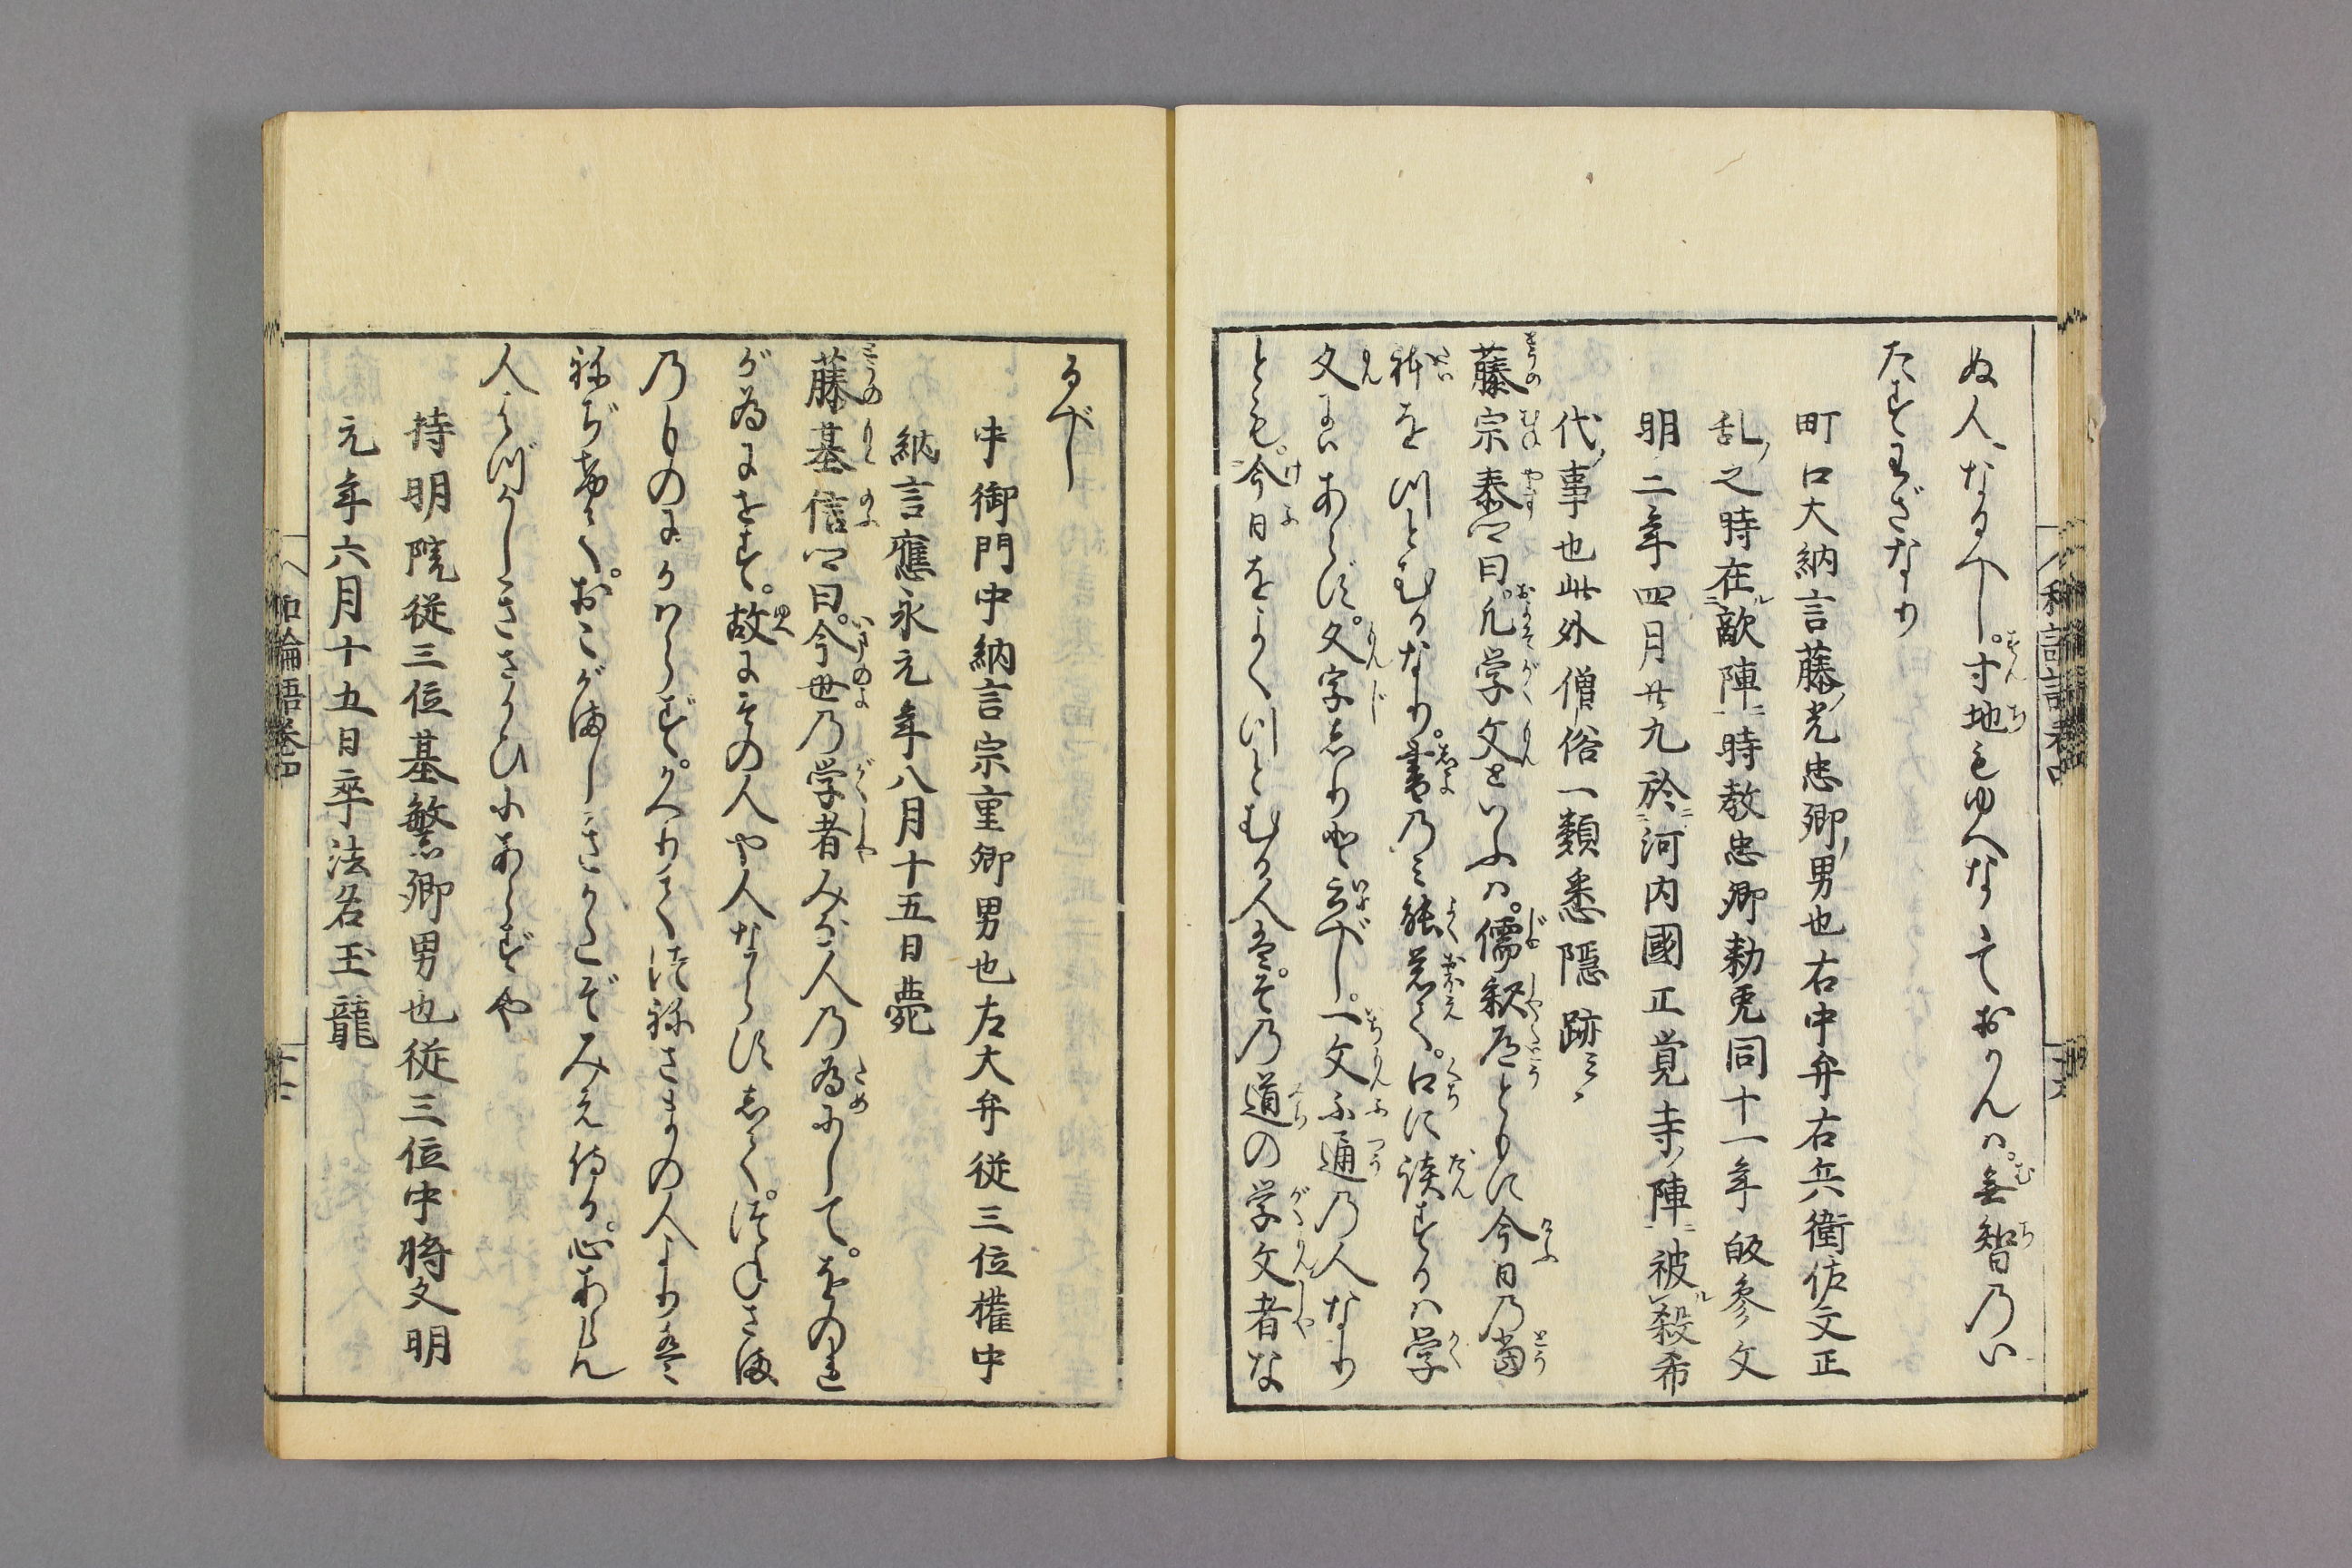 ぬ人なるべし。寸地もゆへなくておかんハ。無智乃い
たすわざなり
町口大納言藤ノ光忠卿ノ男也右中弁右兵衛佐文正
乱ノ之時在ル敵陣ニ時教忠卿勅免同十一年皈參文
明二年四月廿九於河内國正覚寺ノ陣ニ被ル殺希
代ノ事也此外僧俗一類悉隠跡云々
藤宗泰卿曰。凡学文といふハ。儒釈道ともに今日乃当
躰をつとむるなり。書乃ミ能覚て。口に談ずるハ学
文にハあらず。文字しり共云べし。一文不通乃人なり
とも。今日をよくつとむる人こそ。その道の学文者な
るべし
中御門中納言宗重卿男也左大弁従三位権中
納言應永元年八月十五日薨
藤基信卿曰。今世乃学者みな人乃為にして。をのれ
が為にせず。故にその人や人ならずして。つねさま
乃ものにかハらず。かへりてつねさまの人よりも
ねぢけて。おこがましきさかとぞみえ侍る。心あらん
人はづかしきさかひにあらずや
持明院従三位基繁卿男也従三位中将文明
元年六月十五日卒法名玉龍
和論語巻四